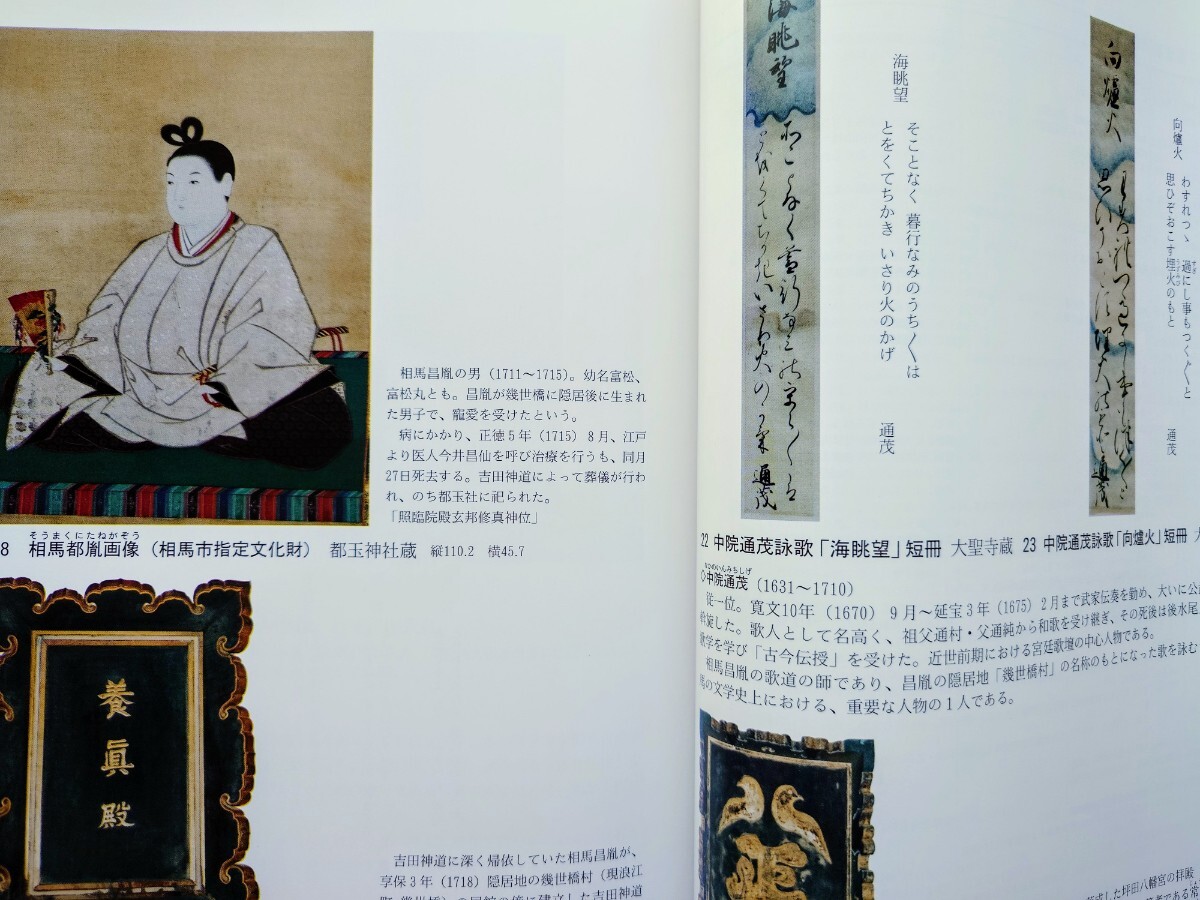 相馬昌胤の男（1711～1715）。幼名富松、
富松丸とも。昌胤が幾世橋に隠居後に生まれ
た男子で、寵愛を受けたという。
病にかかり、正徳5年（1715）8月、江戸
より医人今井昌仙を呼び治療を行うも、同月
27日死去する。吉田神道によって葬儀が行わ
れ、のち都玉社に祀られた。
「照臨院殿玄邦修真神位」
そうまくにたねがぞう
8 相馬都胤画像（相馬市指定文化財） 都玉神社蔵 縦110.2 横45.7
養眞殿
吉田神道に深く帰依していた相馬昌胤が、
享保3年（1718）隠居地の幾世橋村（現浪江
海眺望
海眺望
そことなく 暮行なみのうち〱は
とをくてちかき いさり火のかげ
通茂
通茂
向爐火
向爐火
わすれつゝ 過にし事もつくぐと
すぎ
思ひぞおこす埋火のもと
通茂
通茂
22 中院通茂詠歌「海眺望」短冊 大聖寺蔵
23 中院通茂詠歌「向爐火」短冊
なかのいんみちしげ
○中院通茂（1631～1710）
従一位。寛文10年（1670）9月～延宝3年（1675）2月まで武家伝奏を勤め、大いに公
旋した。歌人として名高く、祖父通村・父通純から和歌を受け継ぎ、その死後は後水尾
歌学を学び「古今伝授」を受けた。近世前期における宮廷歌壇の中心人物である。
相馬昌胤の歌道の師であり、昌胤の隠居地「幾世橋村」の名称のもとになった歌を詠む
馬の文学史上における、重要な人物の1人である。
した坪田八幡宮の拝殿